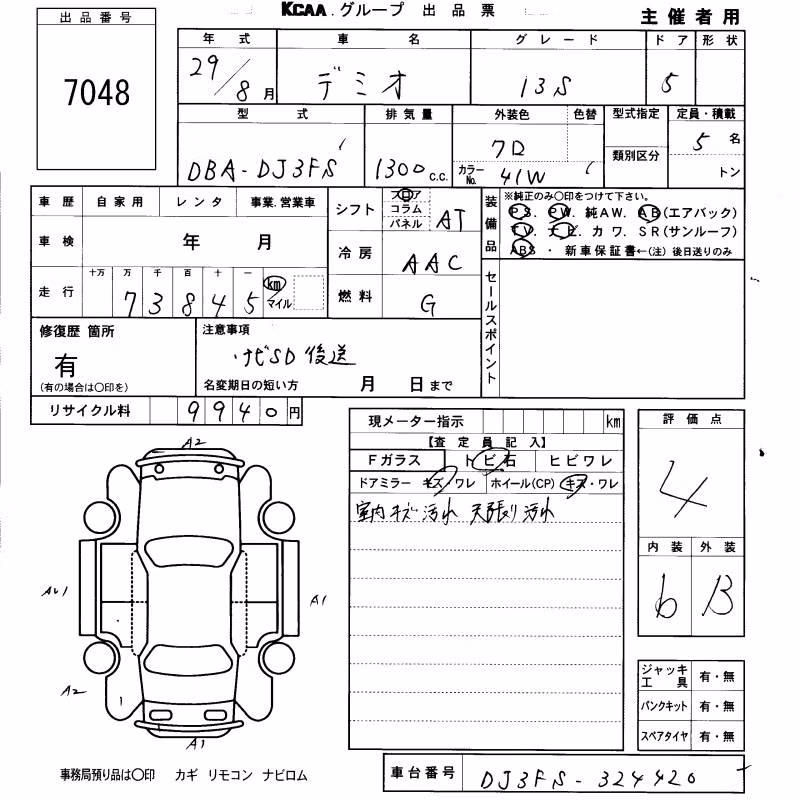 KCAA.グループ 出品票
主催者用
出品番号
7048
年式 車名 グレード ドア 形状
29/8月 デミオ 13S 5
型式 排気量 外装色 色替 型式指定 定員・積載
DBA-DJ3FS 1300c.c. クロ 5名
カラーNo. 41W 類別区分 トン
車歴 自家用 レンタ 事業.営業車
シフト フロア コラム パネル AT
装備品 ※純正のみ〇印をつけて下さい。
PS. PW. 純AW. AB(エアバック)
TV. ナビ. カワ. SR(サンルーフ)
ABS ・ 新車保証書←(注) 後日送りのみ
車検 年 月
冷房 AAC
走行 十万 万 千 百 十 一
73845 km マイル
燃料 G
セールスポイント
修復歴 箇所 注意事項
有 ナビSD後送
(有の場合は〇印を) 名変期日の短い方 月 日まで
リサイクル料 9940円
現メーター指示 km
【査定員記入】
Fガラス トビ石 ヒビワレ
ドアミラー キズ/ワレ ホイール(CP) キズ・ワレ
室内キズ汚れ 天張り汚れ
評価点
4
内装 外装
6 B
A2
A1
A2
A1
ジャッキ工具 有・無
パンクキット 有・無
スペアタイヤ 有・無
事務局預り品は〇印 カギ リモコン ナビロム
車台番号 DJ3FS-324420